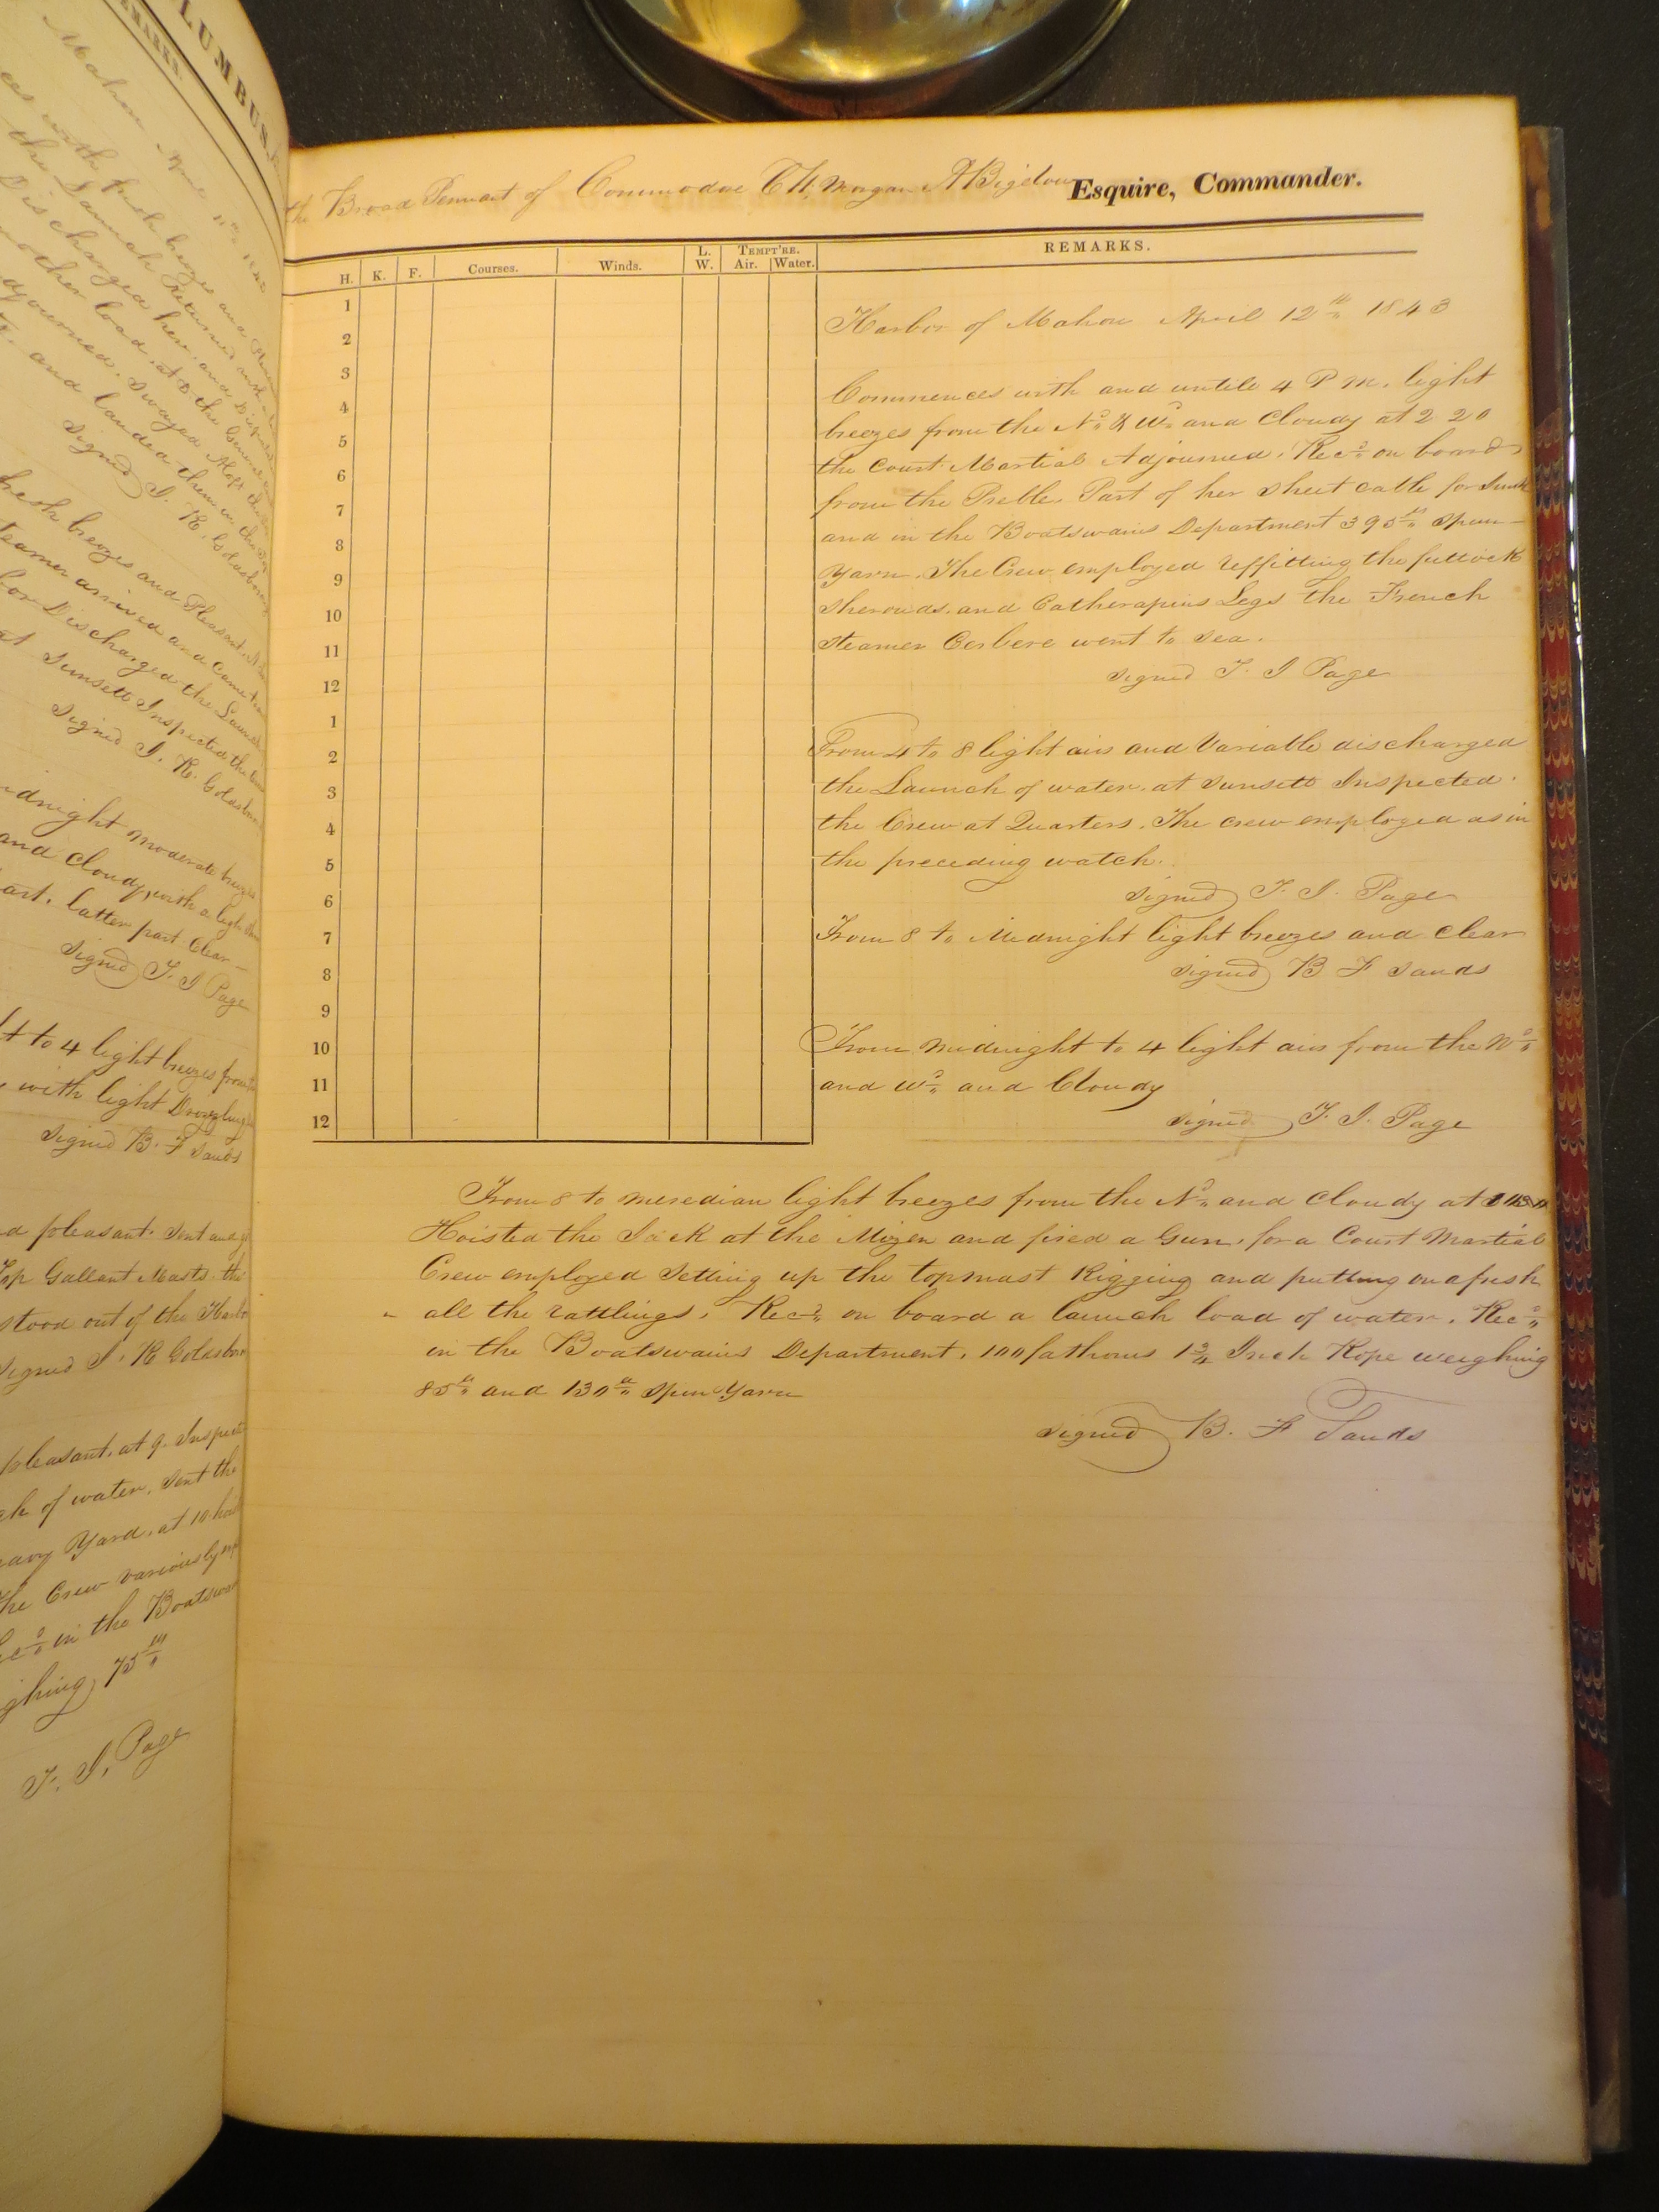 LUMBUS,
EMARKS.
Mahon April 11th 1843
with fresh breezes and
the Launch Returned with
Discharged her, and
another load, at
adjourned. Swayed
and landed them in the
Signed J. R. Goldsborough
fresh breezes and Pleasant.
Steamer arrived and Came
for Discharged the Launch
at Sunsett Inspected the
Signed J. R. Goldsbor
idnight moderate breezes
and cloudy, with a light
art. latter part Clear
Signed T. J Page
t to 4 light breezes from
with light Drizzling
Signed B. F Sands
d pleasant. Sent and
Top Gallant Masts. the
stood out of the Harbr
Signed J. R Goldsbor
pleasant. at 9. Inspect
ch of water. Sent the
avy Yard. at 10 hoist
The Crew variously
Recd in the Boatswa
ghing, 75 lbs
T. J. Page
the Broad Pennant of Commodore C W. Morgan A Bigelow Esquire, Commander.
H. K. F. Courses. Winds. L. W. Tempt're. Air. Water. REMARKS.
1
2
3
4
5
6
7
8
9
10
11
12
1
2
3
4
5
6
7
8
9
10
11
12
Harbor of Mahon April 12th 1843
Commences with and untill 4 P M. light
breezes from the Nd & Wd and Cloudy at 2 20
the Court Martial Adjourned. Recd on board
from the Preble. Part of her sheet cable for Junk
and in the Boatswains Department 395 lbs Spun-
Yarn. The Crew employed reffitting the futtock
Sherouds. and Catherapins Legs the French
Steamer Cerbere went to Sea.
Signed T. J Page
From 4 to 8 light airs and Variable discharged
the Launch of water. at Sunsett Inspected
the Crew at Quarters. The crew employed as in
the preceding watch.
Signed T. J. Page
From 8 to Midnight light breezes and clear
Signed B F Sands
From midnight to 4 light airs from the Nd
and Wd and Cloudy
Signed T. J. Page
From 8 to meredian light breezes from the Nd and cloudy at
Hoisted the Jack at the Mizen and fired a Gun. for a Court Martial
Crew employed Setting up the topmast Rigging and putting on afresh
all the rattlings. Recd on board a launch load of water. Recd
in the Boatswains Department. 100 fathoms 1 3/4 Inch Rope weighing
85 lbs and 130 lbs Spun Yarn
Signed B. F Sands